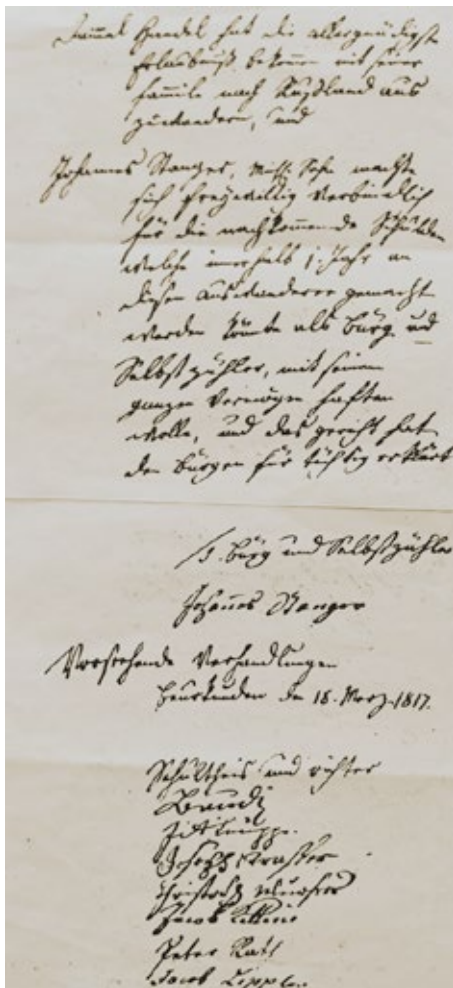 Handel hat die allergnädigste
Erlaubniß bekommen mit seiner
Famile nach Rußland aus
zuwandern, und
Johannes Stanger, Sohn machte
sich freywillig Verbindlich
für die nachkommende Schulden
welche innerhalb 1. Jahr an
diesen auswanderer gemacht
werden könte als bürg und
Selbstzahler, mit seinem
ganzen Vermögen haften
wolle, und das gericht hat
den bürgen für tüchtig erklärt
bürg und Selbstzahler
Johannes Stanger
Vorstehende Verhandlungen
beurkunden den 18. Merz 1817.
Schultheis und richter
Joseph
Christoph
Jacob
Peter Rath
Jacob